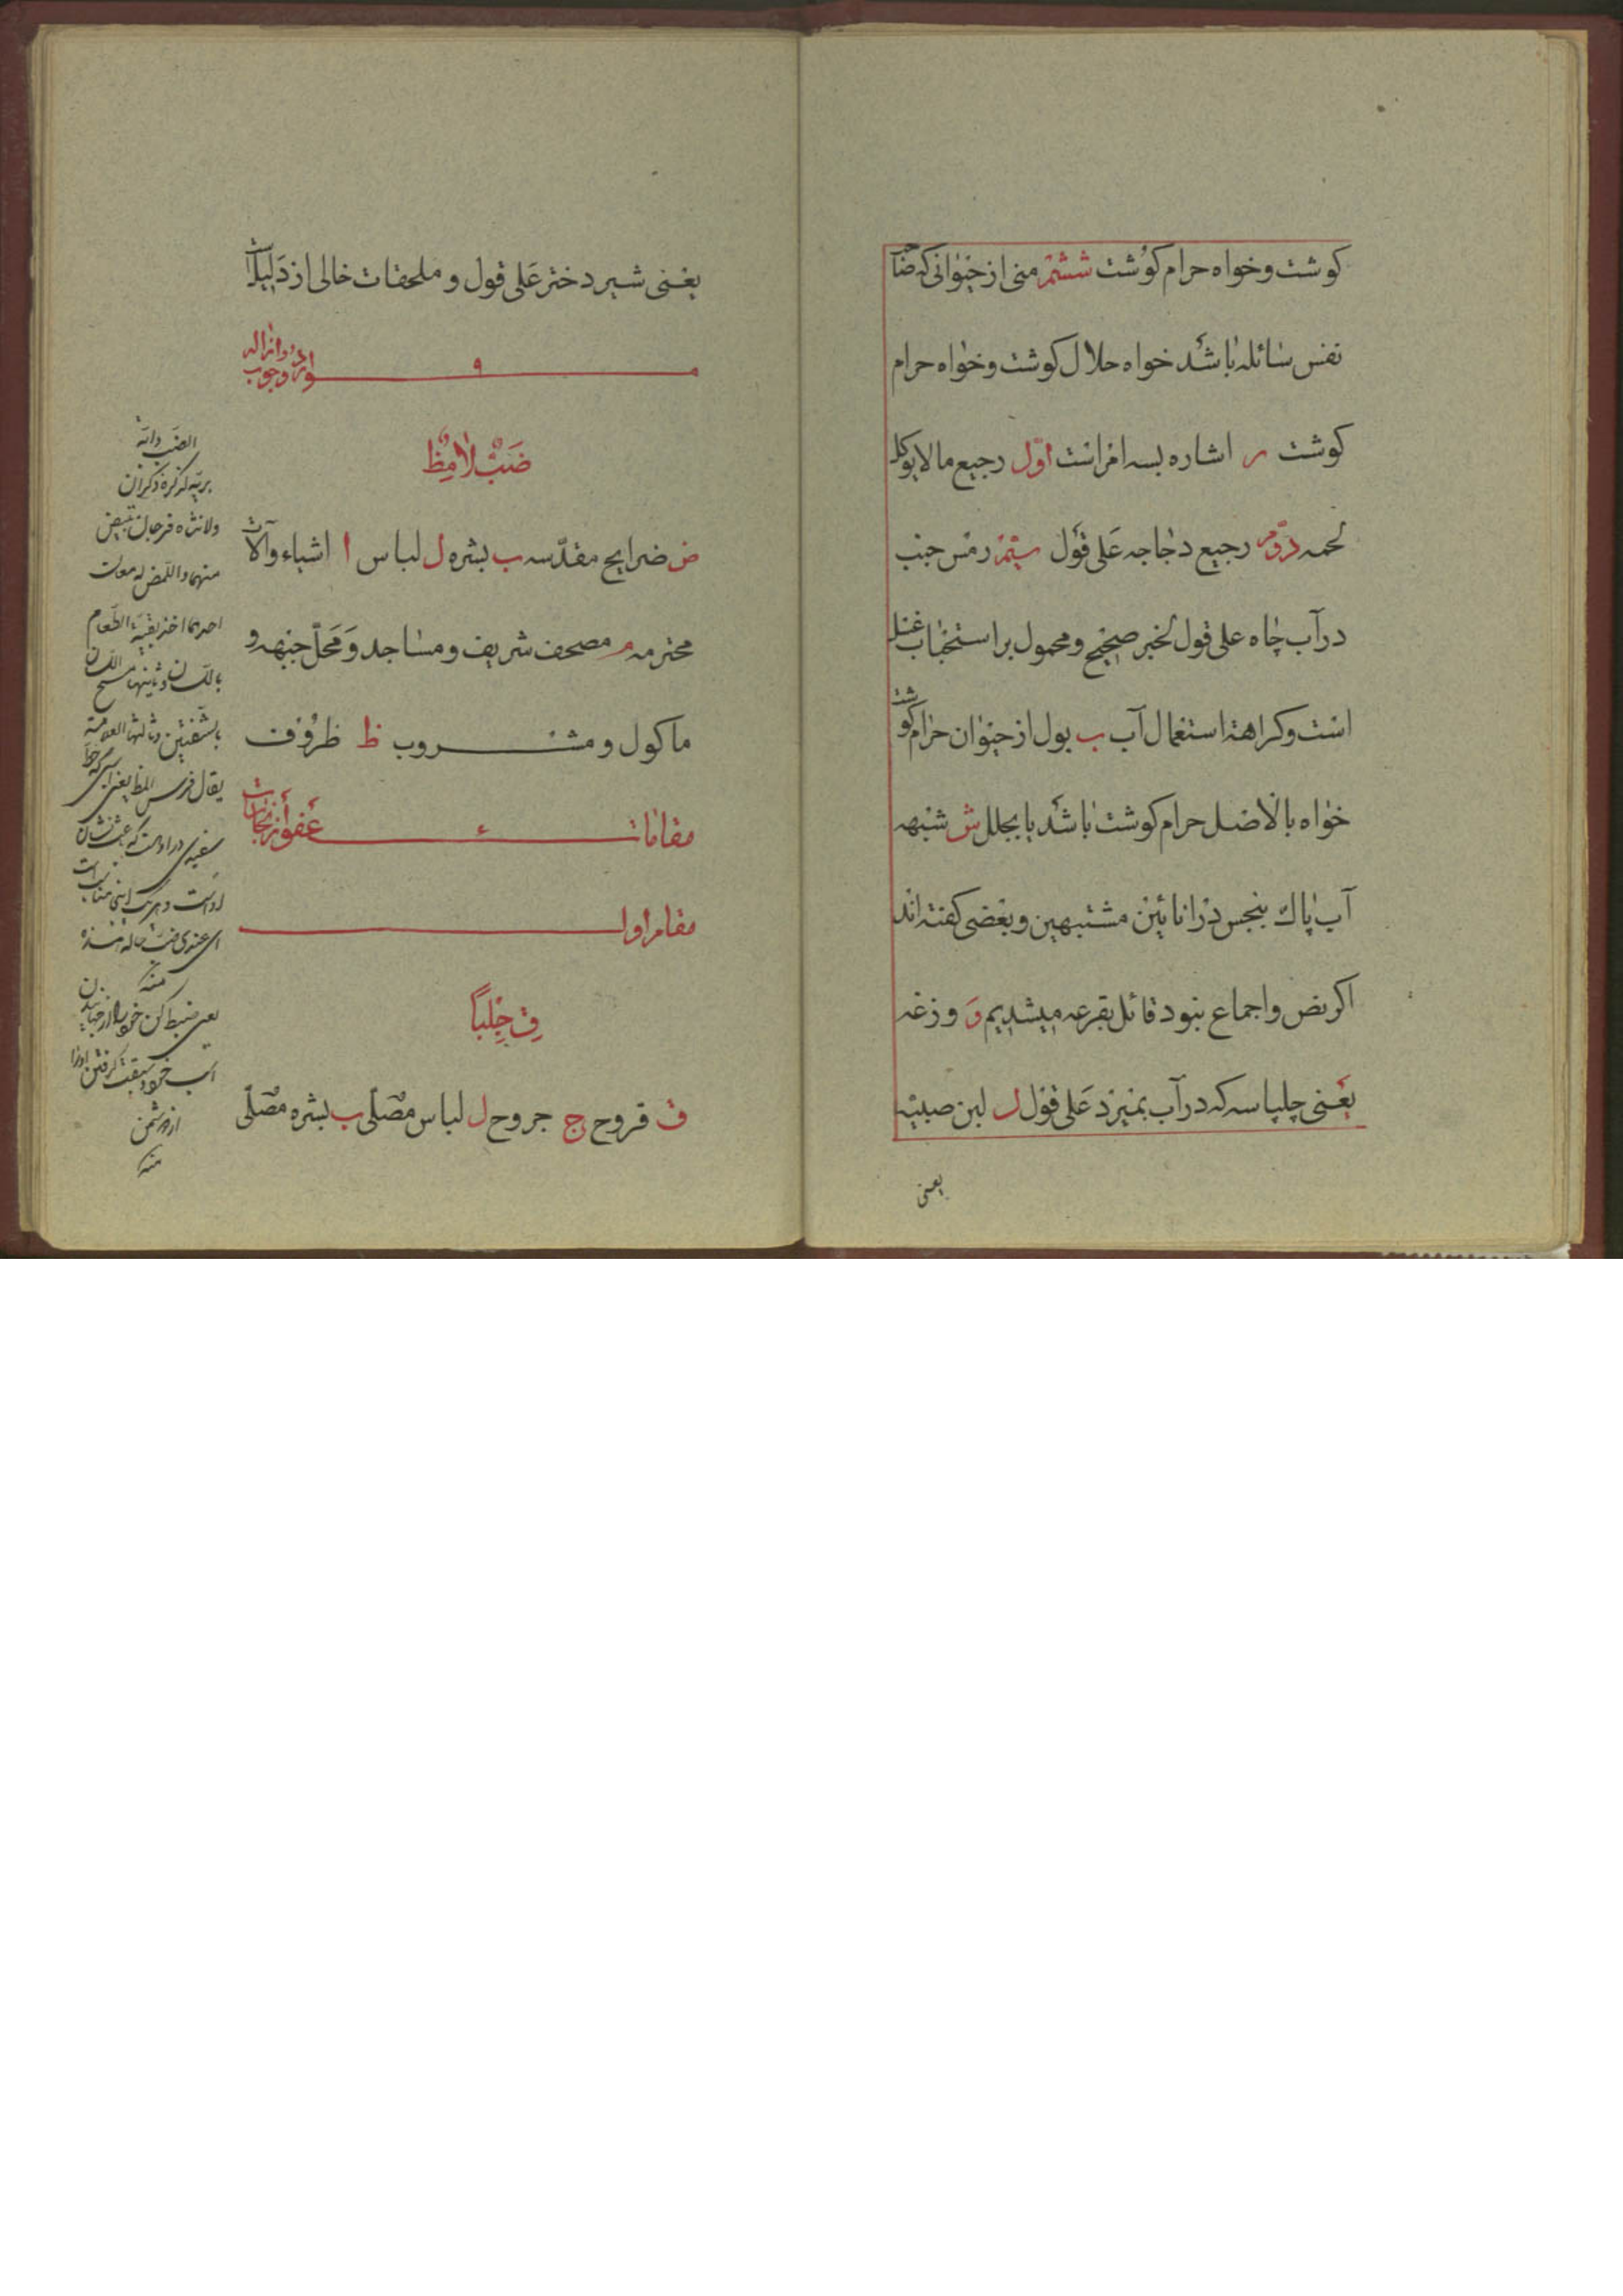 کوشت و خواه حرام کوشت ششم منی از حیوانی که صاحب
نفس سائله باشد خواه حلال کوشت و خواه حرام
کوشت ر اشاره بسه امر است اول رجیع مالا یوکل
لحمه دوم رجیع دجاجه علی قول سیم رمس جنب
در آب چاه علی قول لخبر صحیح و محمول بر استحباب غسل
است و کراهة استعمال آب ب بول از حیوان حرام کوشت
خواه بالاصل حرام کوشت باشد یا بجلل ش شبهه
آب پاک بنجس در انائین مشتبهین و بعضی کفته اند
اکر نص و اجماع نبود قائل بقرعه میشدیم و وزغه
یعنی چلپاسه که در آب بمیرد علی قول ل لبن صبیه
یعنی
یعنی شیر دختر علی قول و ملحقات خالی از دلیلات
موارد وجوب ازاله
ضب لامظ
ض ضرایح مقدسه ب بشره ل لباس ا اشیاء و آلات
محترمه م مصحف شریف و مساجد و محل جبهه و
ماکول و مشروب ظ ظروف
مقامات عفو از نجاسات
مقام اول
ق جلبا
ق قروح ج جروح ل لباس مصلی ب بشره مصلی
الضب دابة
بریه لذکره ذکران
ولانثاه فرجان تبیض
منهما و اللمض له معان
احدها اخذ بقیة الطعام
باللسان و ثانیها مسح
بالشفتین و ثالثها العلامة
یقال فرس المظ یعنی
منه
یعنی ضبط کن خود را از
اسب خود سبقت کرفتن
از دشمن
منه